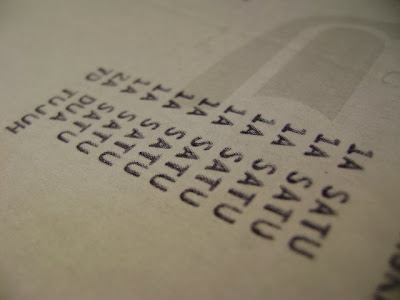 1A SATU
1A SATU
1A SATU
1A SATU
1A SATU
1A SATU
1A SATU
1A SATU
2A DUA
7D TUJUH